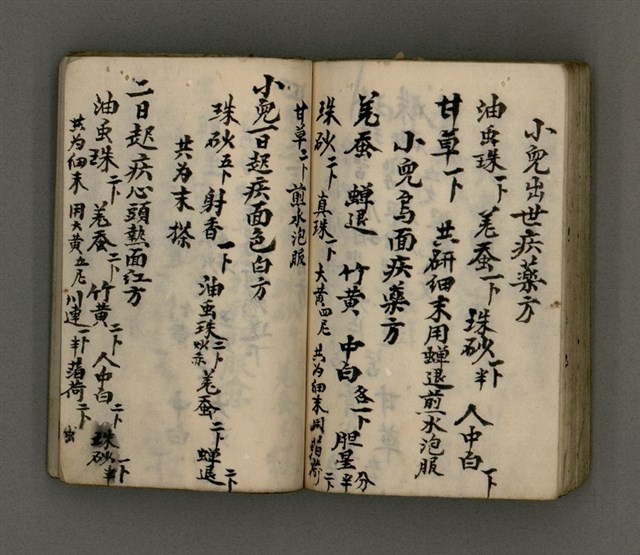 小兒出世疾藥方
油虫珠一卜 羌蚕一卜 珠砂一卜半 人中白一卜
甘草一卜 共研細末用蟬退煎水泡服
小兒烏面疾藥方
羌蚕 蟬退 竹黄 中白各一卜 胆星半分
珠砂二卜 真珠一卜 大黄四尼 共为细末用
甘草二卜 煎水泡服
小兒一日起疾面色白方
珠砂五卜 射香一卜 油虫珠三卜 羌蚕二卜 蟬退二卜
共为末搽
二日起疾心頭熱面红方
油虫珠二卜 羌蚕二卜 竹黄二卜 人中白二卜 珠砂一卜半
共为细末 用大黄五尼 川連一卜半 薄荷二卜